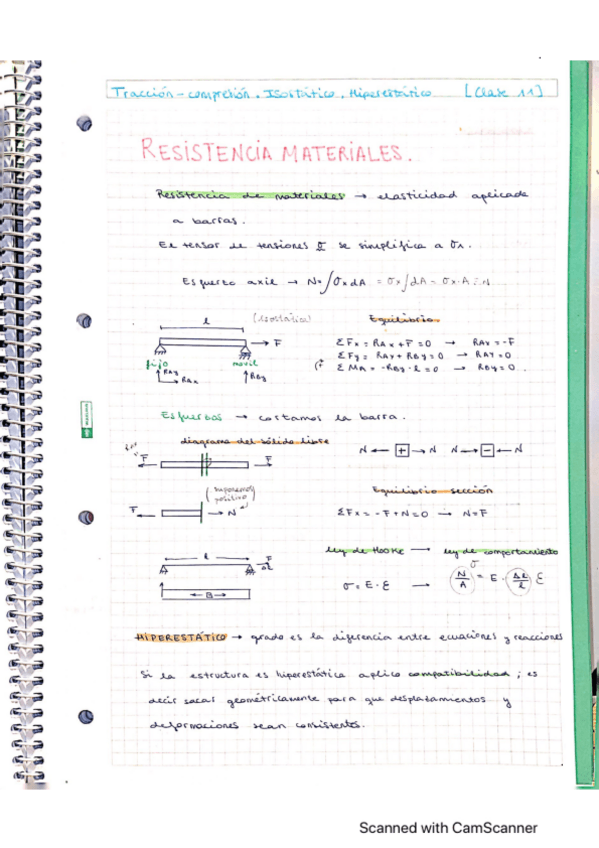 Tracción - compresión. Isostático. Hiperestático [Clase 11]
RESISTENCIA MATERIALES.
Resistencia de materiales → elasticidad aplicada
a barras.
El tensor de tensiones σ se simplifica a σx.
Esfuerzo axil → N=∫σx dA = σx∫dA = σx·A = N
l (Isostático) Equilibrio
→ F
ΣFx = RAx + F = 0 → RAx = -F
fijo móvil ΣFy = RAy + RBy = 0 → RAy = 0
RAy RAx RBy ΣMA = -RBy · l = 0 → RBy = 0.
Esfuerzos → cortamos la barra.
diagrama del sólido libre
F F N ← + → N N → - ← N
(suponemos positivo) Equilibrio sección
F N ΣFx = -F + N = 0 → N = F
ley de Hooke → ley de comportamiento
l F Δl σ
σ = E · ε → N/A = E · Δl/l ε
HIPERESTÁTICO → grado es la diferencia entre ecuaciones y reacciones
Si la estructura es hiperestática aplico compatibilidad; es
decir sacar geométricamente para que desplazamientos y
deformaciones sean consistentes.
Scanned with CamScanner